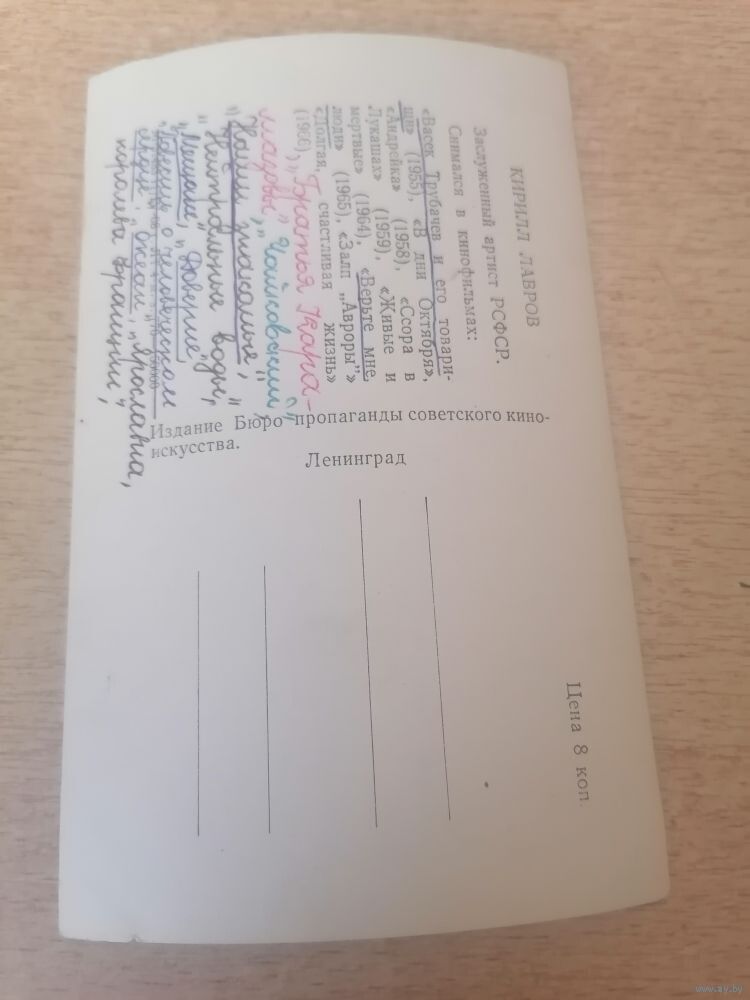 КИРИЛЛ ЛАВРОВ
Заслуженный артист РСФСР.
Снимался в кинофильмах:
«Васек Трубачев и его товари-
щи» (1955), «В дни Октября»,
(1958), «Ссора в
Лукашах» (1959), «Живые и
мертвые» (1964), «Верьте мне,
люди» (1965), «Залп „Авроры"»
«Долгая, счастливая жизнь»
(1966), „Братья Кара-
мазовы", „Чайковский",
„Наши знакомые",
„Нейтральные воды",
„Мещане", „Доверие",
о человеческом
„Океан", „Ярославна,
королева Франции",
Издание Бюро пропаганды советского кино-
искусства.
Ленинград
Цена 8 коп.
www.ay.by